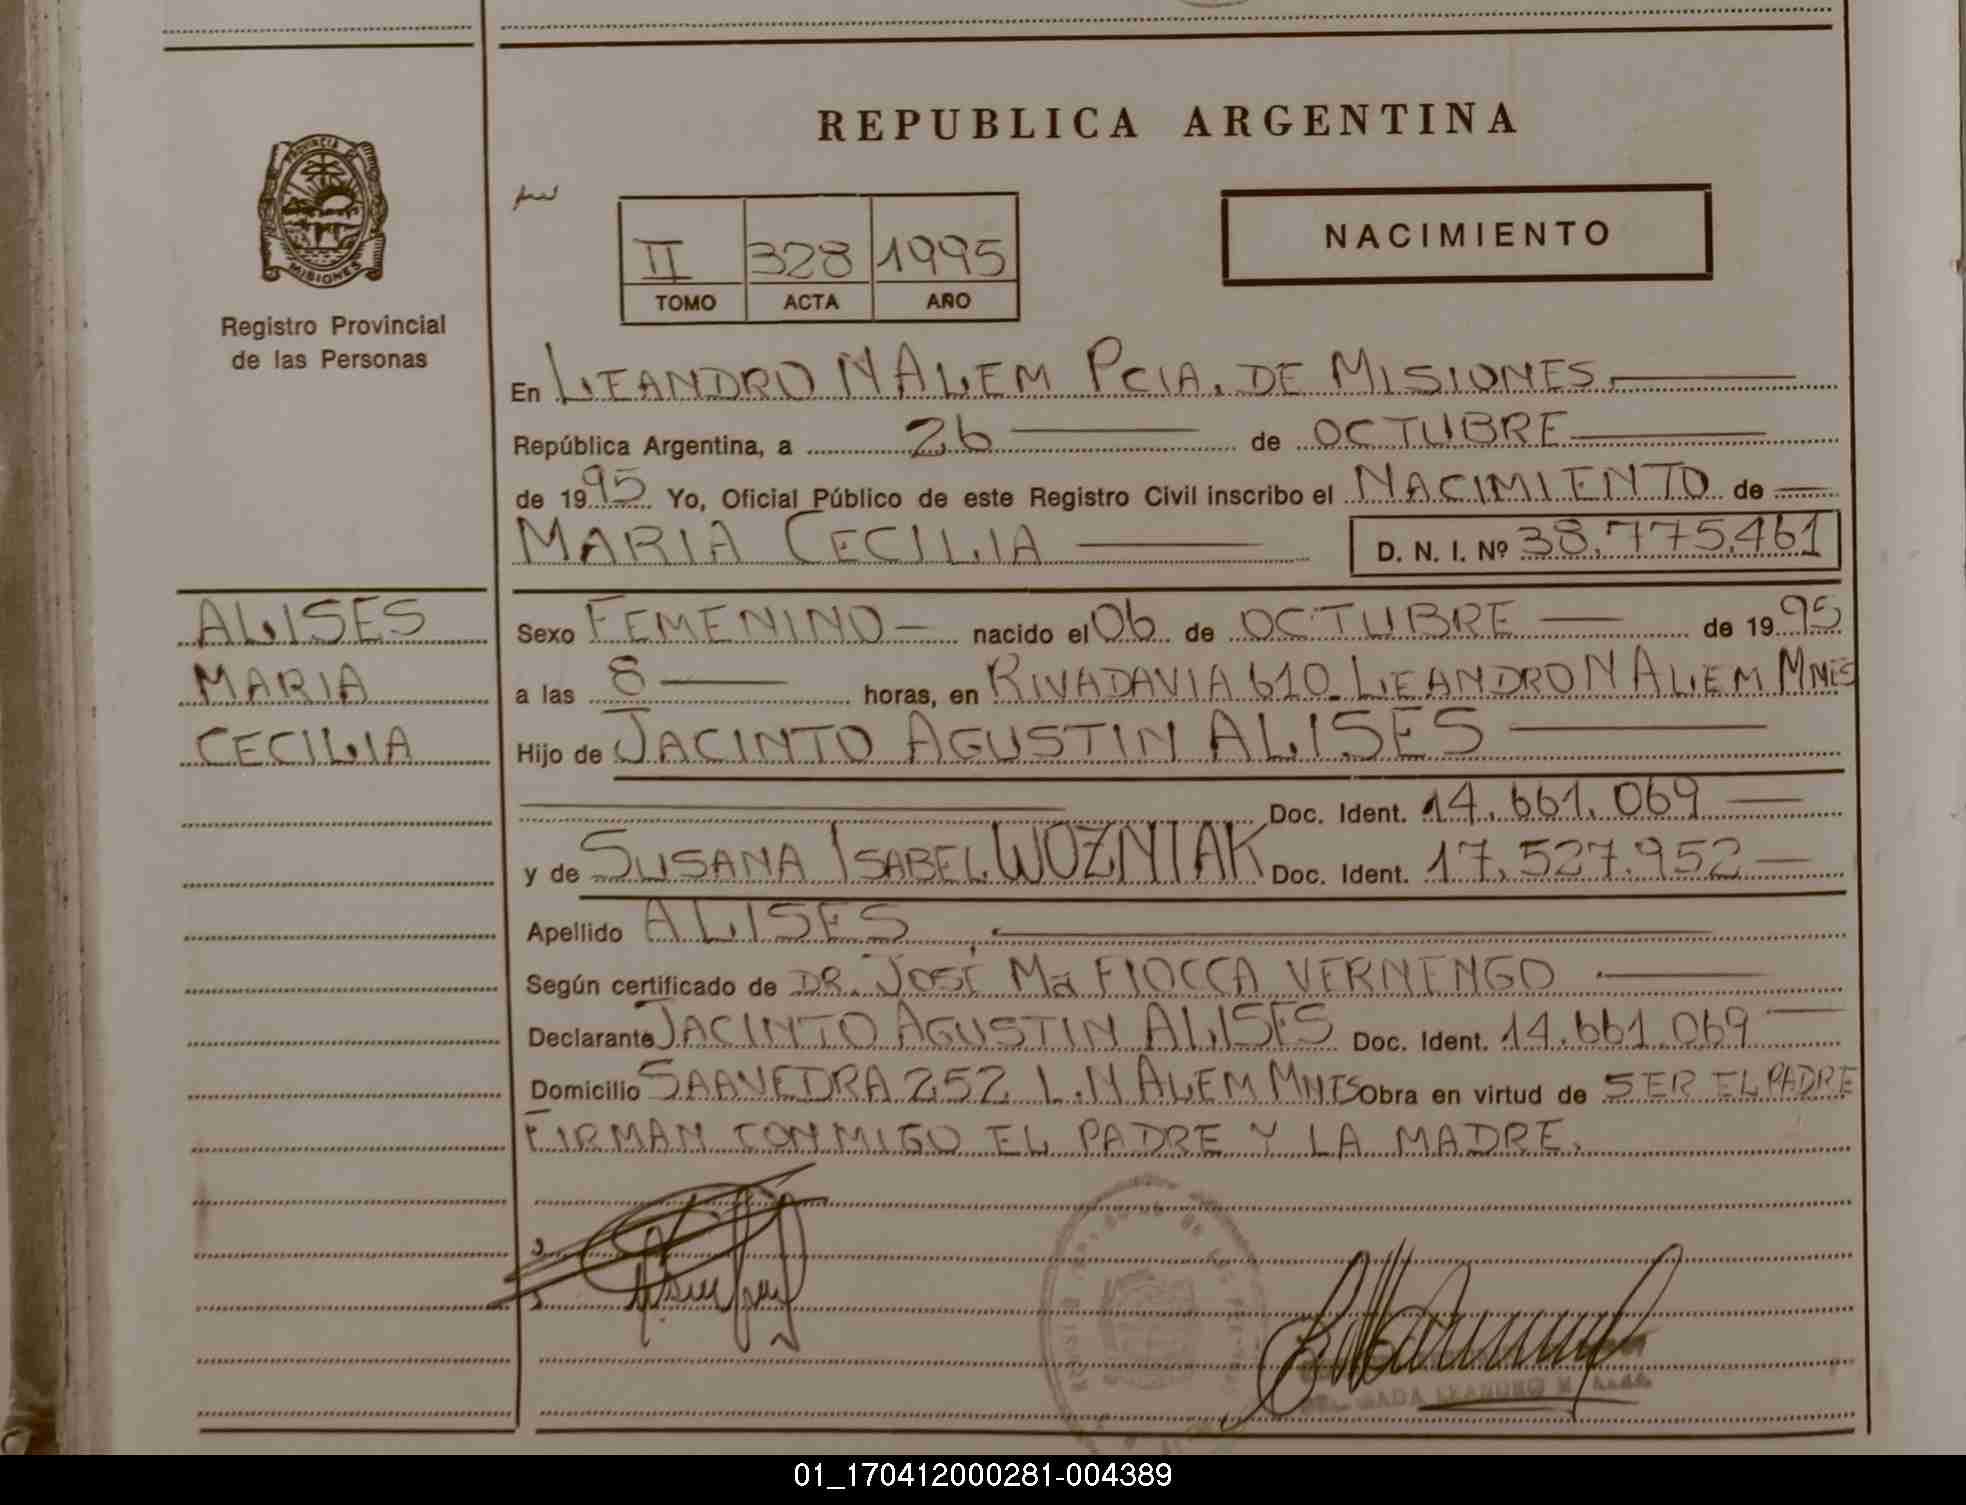 REPUBLICA ARGENTINA
PROVINCIA DE
MISIONES
Registro Provincial
de las Personas
II 328 1995
TOMO ACTA AÑO
NACIMIENTO
En LEANDRO N ALEM PCIA. DE MISIONES.
República Argentina, a 26 de OCTUBRE
de 1995 Yo, Oficial Público de este Registro Civil inscribo el NACIMIENTO de
MARIA CECILIA D. N. I. Nº 38.775.461
ALISES
MARIA
CECILIA
Sexo FEMENINO nacido el 06 de OCTUBRE de 1995
a las 8 horas, en RIVADAVIA 610 LEANDRO N ALEM MNES
Hijo de JACINTO AGUSTIN ALISES
Doc. Ident. 14.661.069
y de SUSANA ISABEL WOZNIAK Doc. Ident. 17.527.952
Apellido ALISES
Según certificado de DR. JOSÉ Ma FIOCCA VERNENGO
Declarante JACINTO AGUSTIN ALISES Doc. Ident. 14.661.069
Domicilio SAAVEDRA 252 L.N ALEM MNES Obra en virtud de SER EL PADRE
FIRMAN CONMIGO EL PADRE Y LA MADRE.
LEANDRO N.
01_170412000281-004389